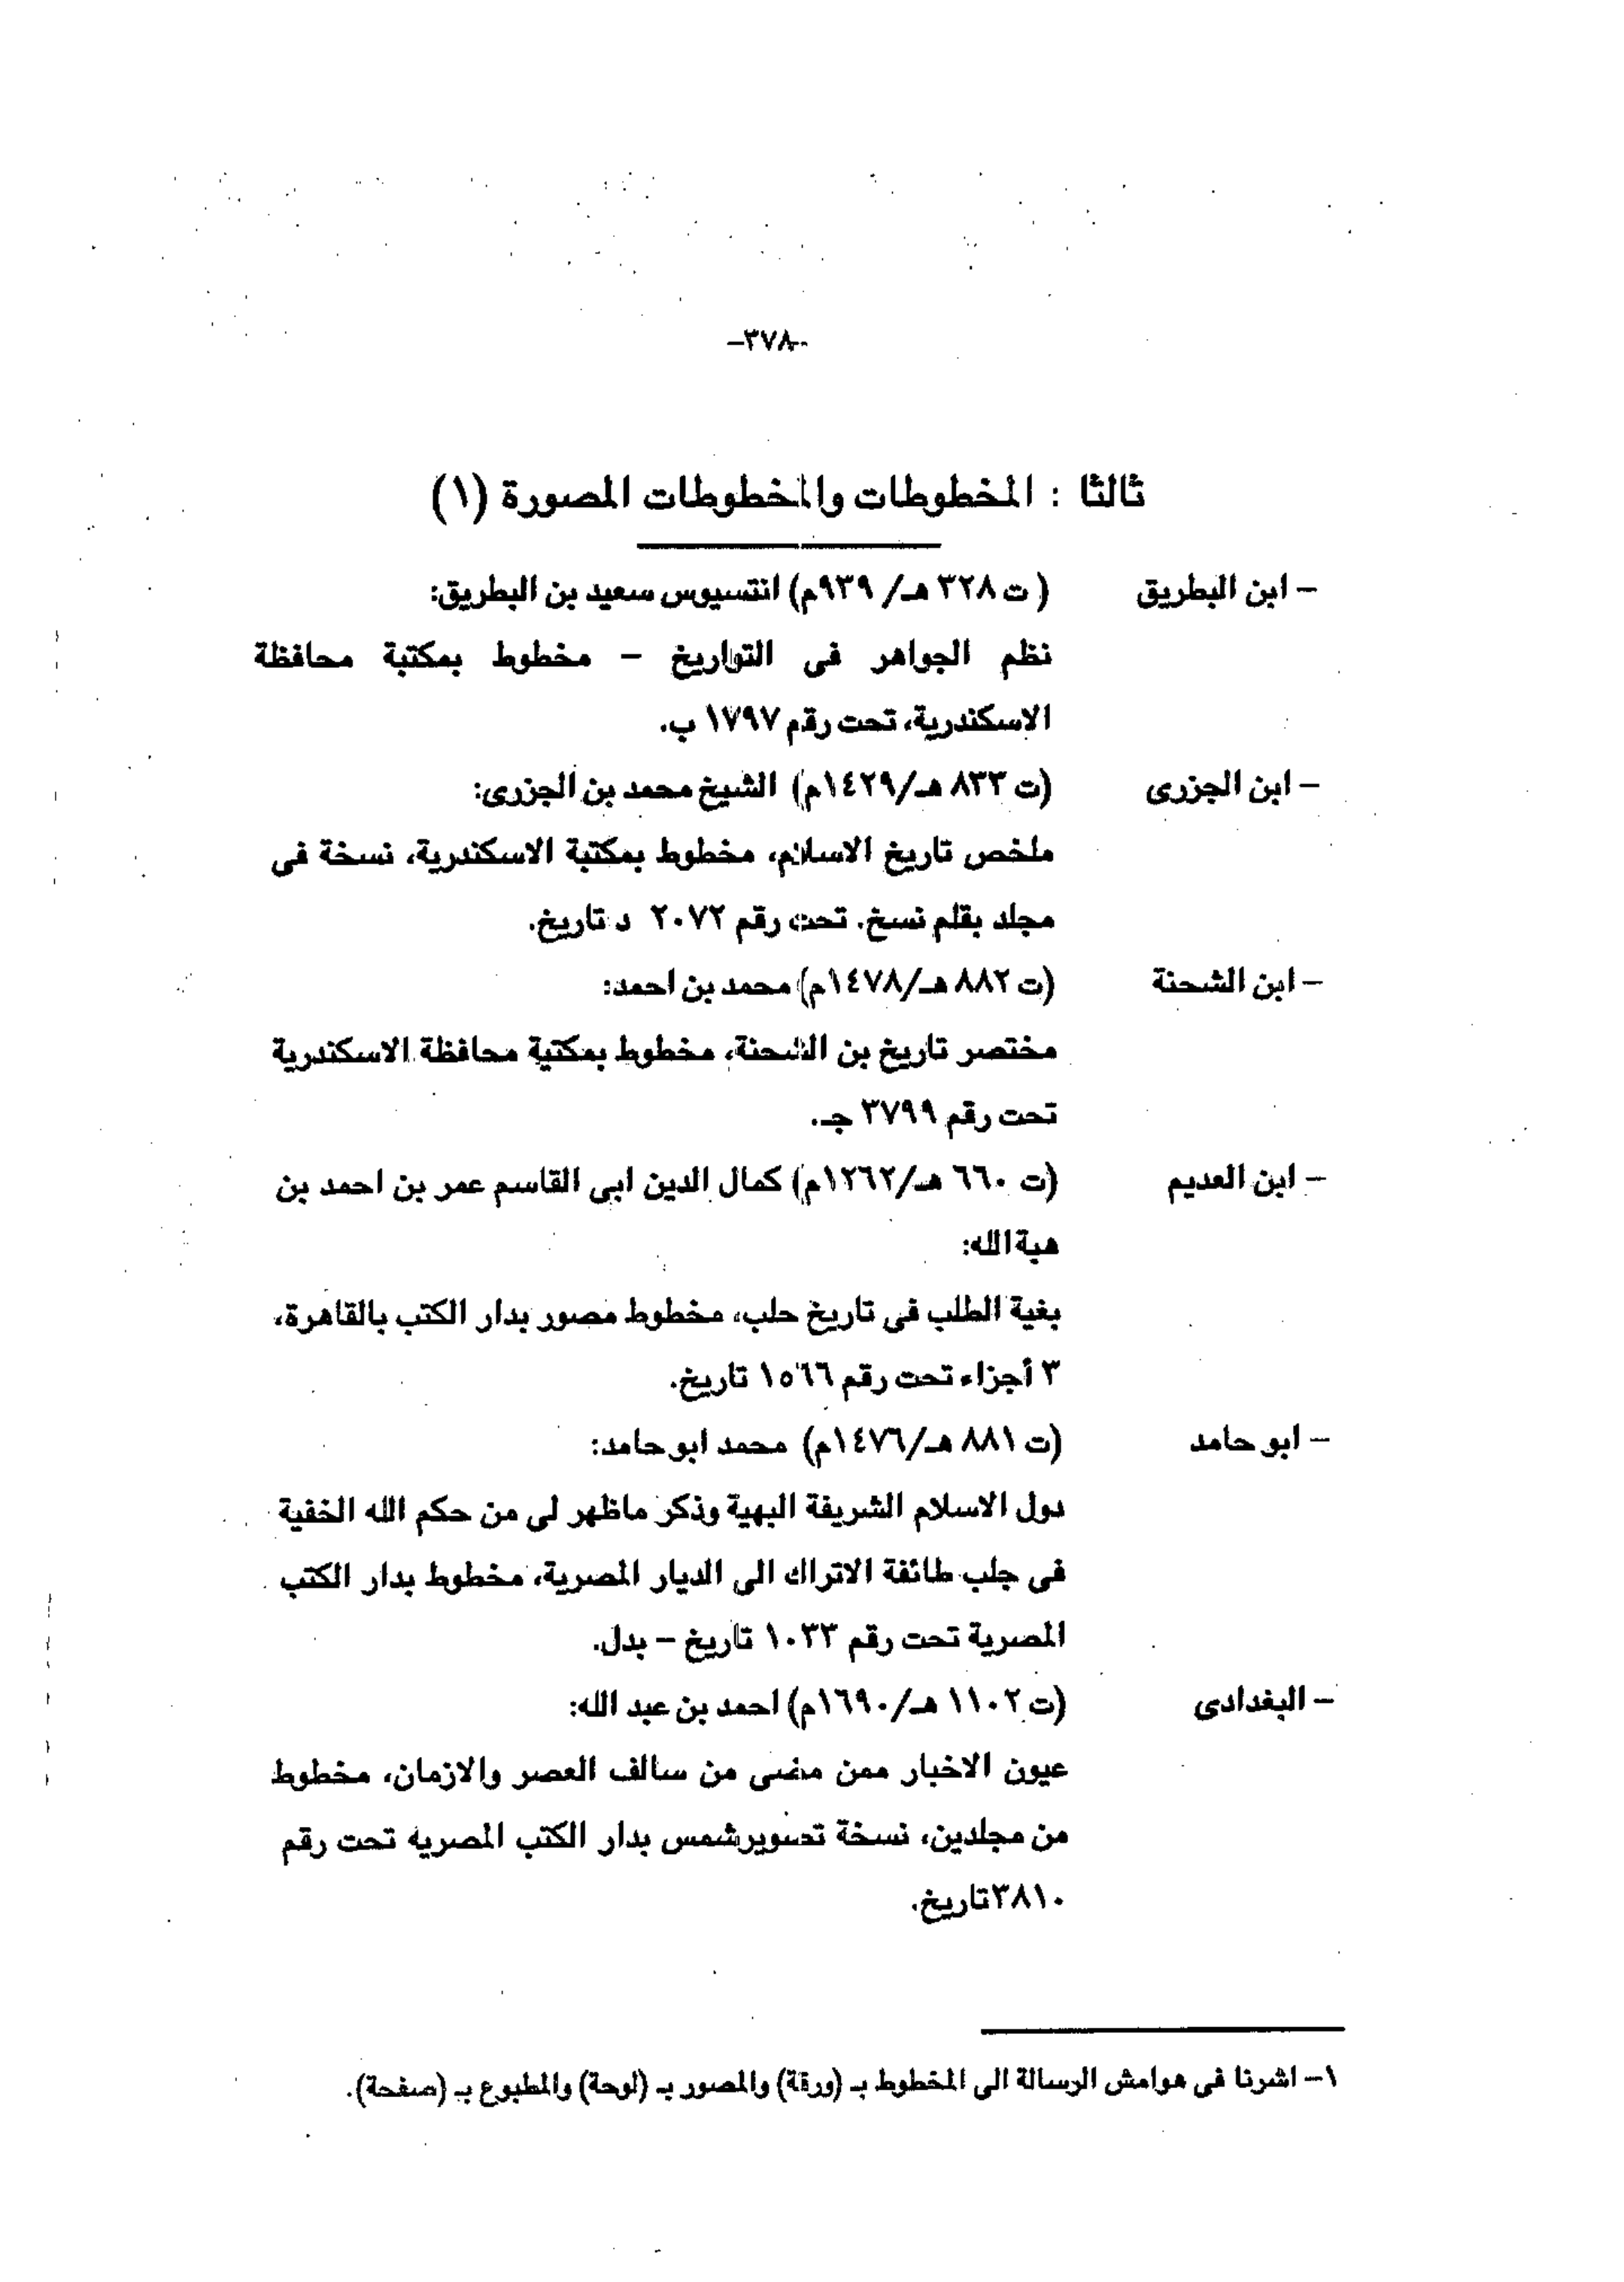 -٣٧٨-
ثالثا : المخطوطات والمخطوطات المصورة (١)
- ابن البطريق ( ت ٣٢٨ هـ/ ٩٣٩م) انتسيوس سعيد بن البطريق:
نظم الجواهر فى التواريخ - مخطوط بمكتبة محافظة
الاسكندرية، تحت رقم ١٧٩٧ ب.
- ابن الجزرى (ت ٨٣٣ هـ/١٤٢٩م) الشيخ محمد بن الجزرى:
ملخص تاريخ الاسلام، مخطوط بمكتبة الاسكندرية، نسخة فى
مجلد بقلم نسخ. تحت رقم ٢٠٧٢ د تاريخ.
- ابن الشحنة (ت ٨٨٢ هـ/١٤٧٨م) محمد بن احمد:
مختصر تاريخ بن الشحنة، مخطوط بمكتبة محافظة الاسكندرية
تحت رقم ٣٧٩٩ جـ.
- ابن العديم (ت ٦٦٠ هـ/١٢٦٢م) كمال الدين ابى القاسم عمر بن احمد بن
هبة الله:
بغية الطلب فى تاريخ حلب، مخطوط مصور بدار الكتب بالقاهرة،
٣ أجزاء تحت رقم ١٥٦٦ تاريخ.
- ابو حامد (ت ٨٨١ هـ/١٤٧٦م) محمد ابو حامد:
دول الاسلام الشريفة البهية وذكر ماظهر لى من حكم الله الخفية
فى جلب طائفة الاتراك الى الديار المصرية، مخطوط بدار الكتب
المصرية تحت رقم ١٠٣٣ تاريخ - بدل.
- البغدادى (ت ١١٠٢ هـ/١٦٩٠م) احمد بن عبد الله:
عيون الاخبار ممن مضى من سالف العصر والازمان، مخطوط
من مجلدين، نسخة تصويرشمس بدار الكتب المصريه تحت رقم
٣٨١٠تاريخ.
١- اشرنا فى هوامش الرسالة الى المخطوط بـ (ورقة) والمصور بـ (لوحة) والمطبوع بـ (صفحة).